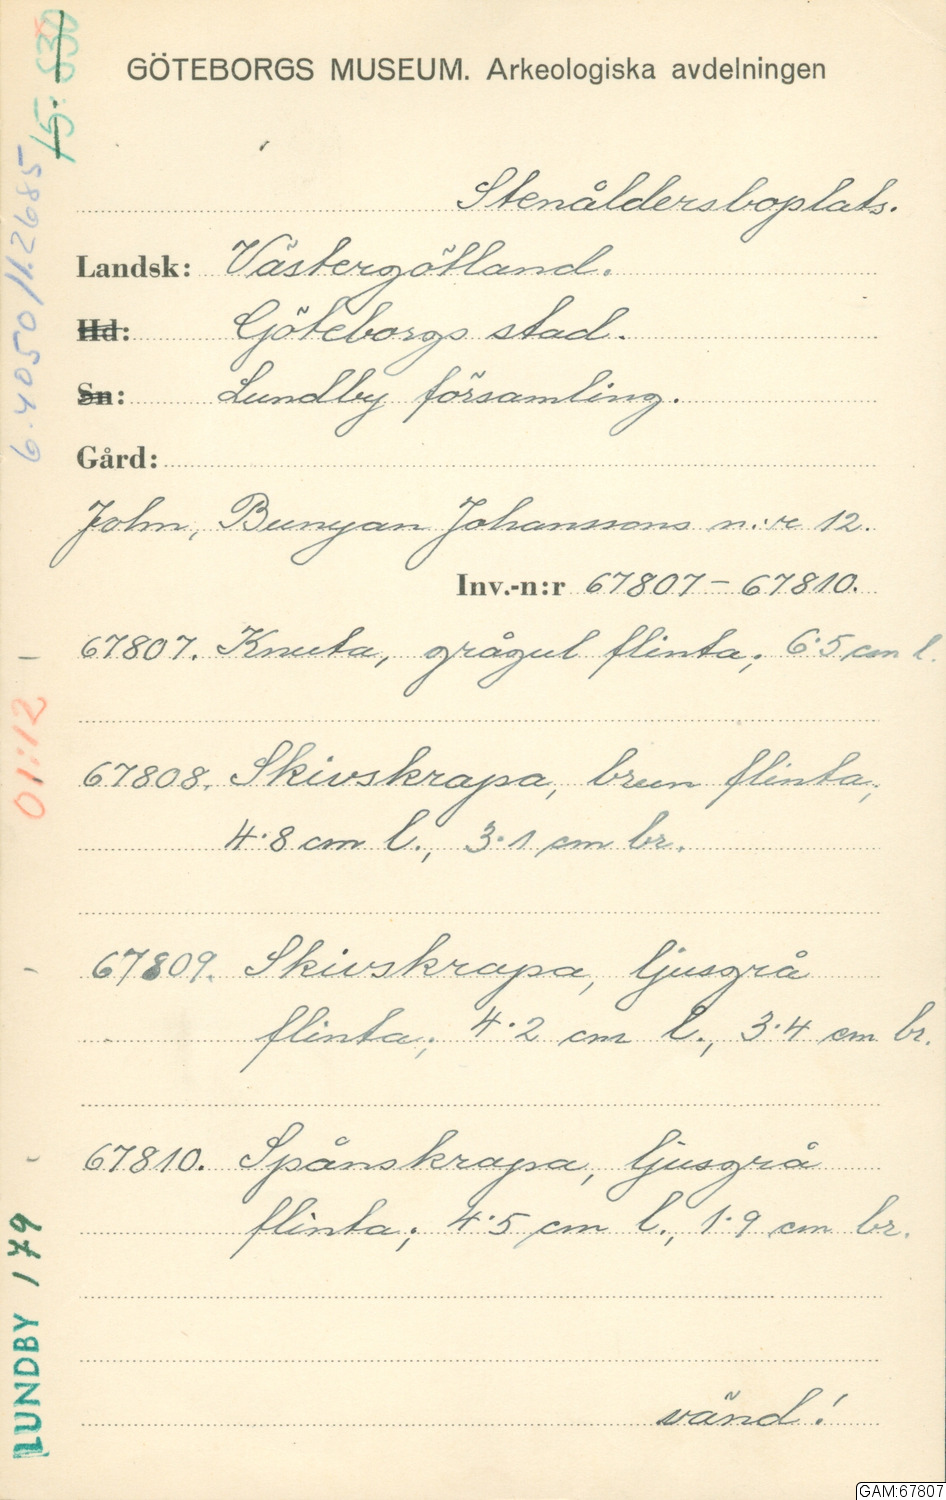 GÖTEBORGS MUSEUM. Arkeologiska avdelningen
Stenåldersboplats.
Landsk: Västergötland.
Hd: Göteborgs stad.
Sn: Lundby församling.
Gård:
John, Bunyan Johanssons n:r 12.
Inv.-n:r 67807–67810.
67807. Knuta, grågul flinta; 6·5 cm l.
67808. Skivskrapa, brun flinta;
4·8 cm l., 3·1 cm br.
67809. Skivskrapa, ljusgrå
flinta; 4·2 cm l., 3·4 cm br.
67810. Spånskrapa, ljusgrå
flinta; 4·5 cm l., 1·9 cm br.
vänd!
15:530
6.4050/1.2685
01:12
LUNDBY 179
GAM:67807